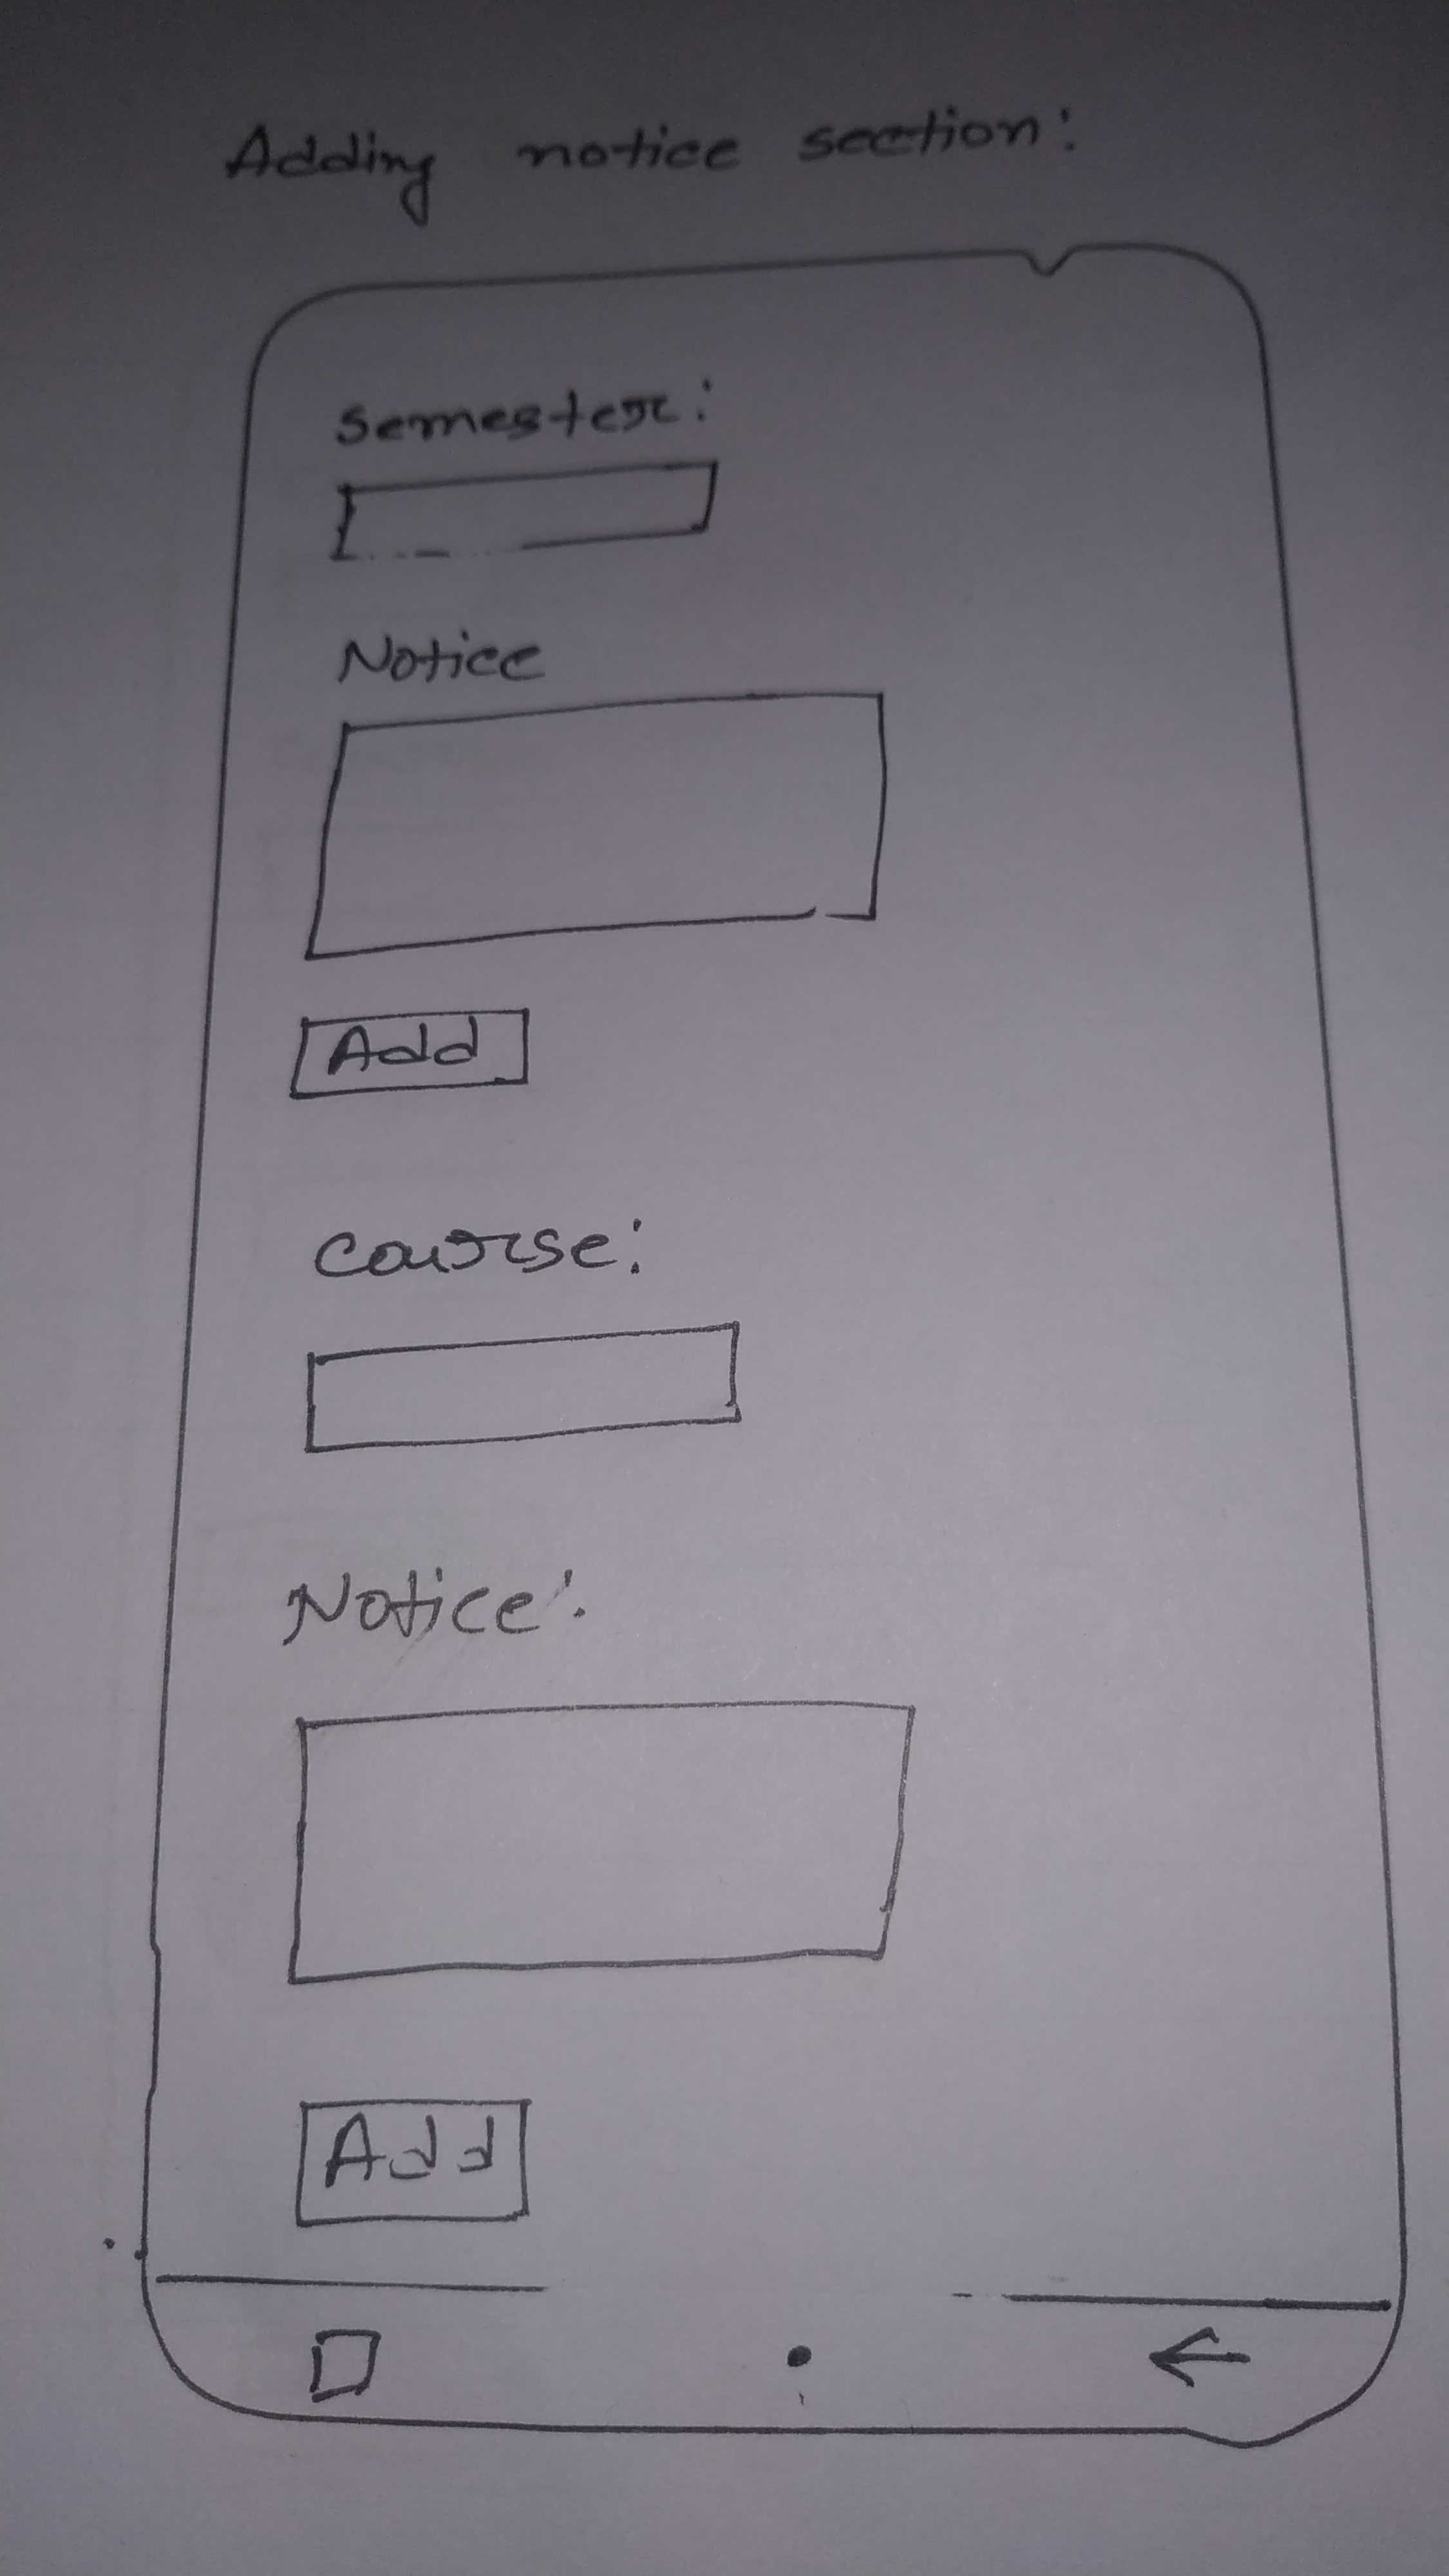 Adding notice section:
Semester:
Notice
Add
Course:
Notice:
Add